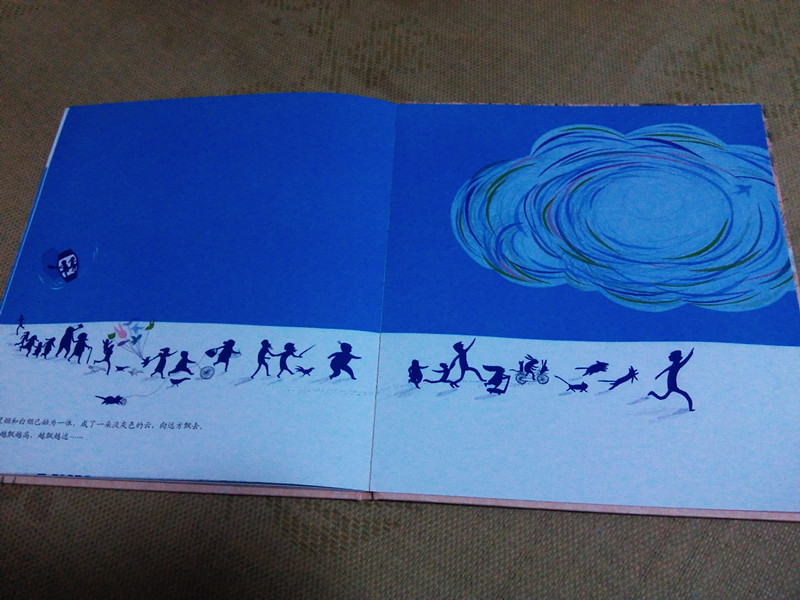 烟和白烟已融为一体，成了一朵淡灰色的云，向远方飘去。
越飘越高，越飘越远……